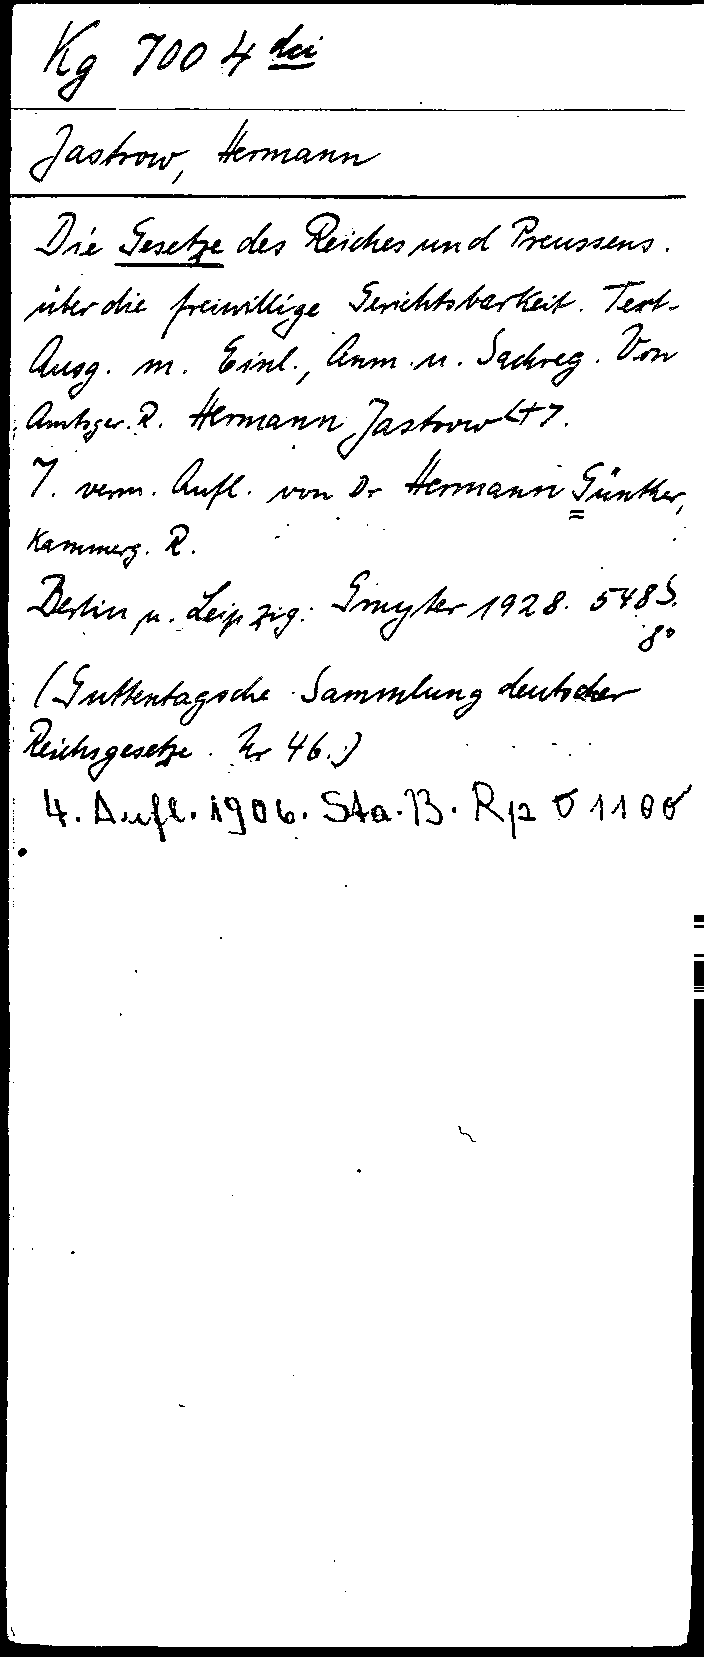 Kg 7004 dci
Jastrow, Hermann
Die Gesetze des Reiches und Preussens.
über die freiwillige Gerichtsbarkeit. Text-
Ausg. m. Einl., Anm. u. Sachreg. Von
Amtsger. R. Hermann Jastrow [+].
7. verm. Aufl. von Dr Hermann Günther,
Kammerg. R.
Berlin u. Leipzig: Gruyter 1928. 548 S.
8°
(Guttentagsche Sammlung deutscher
Reichsgesetze. Nr 46.)
4. Aufl. 1906. Sta. B. Rp 1100